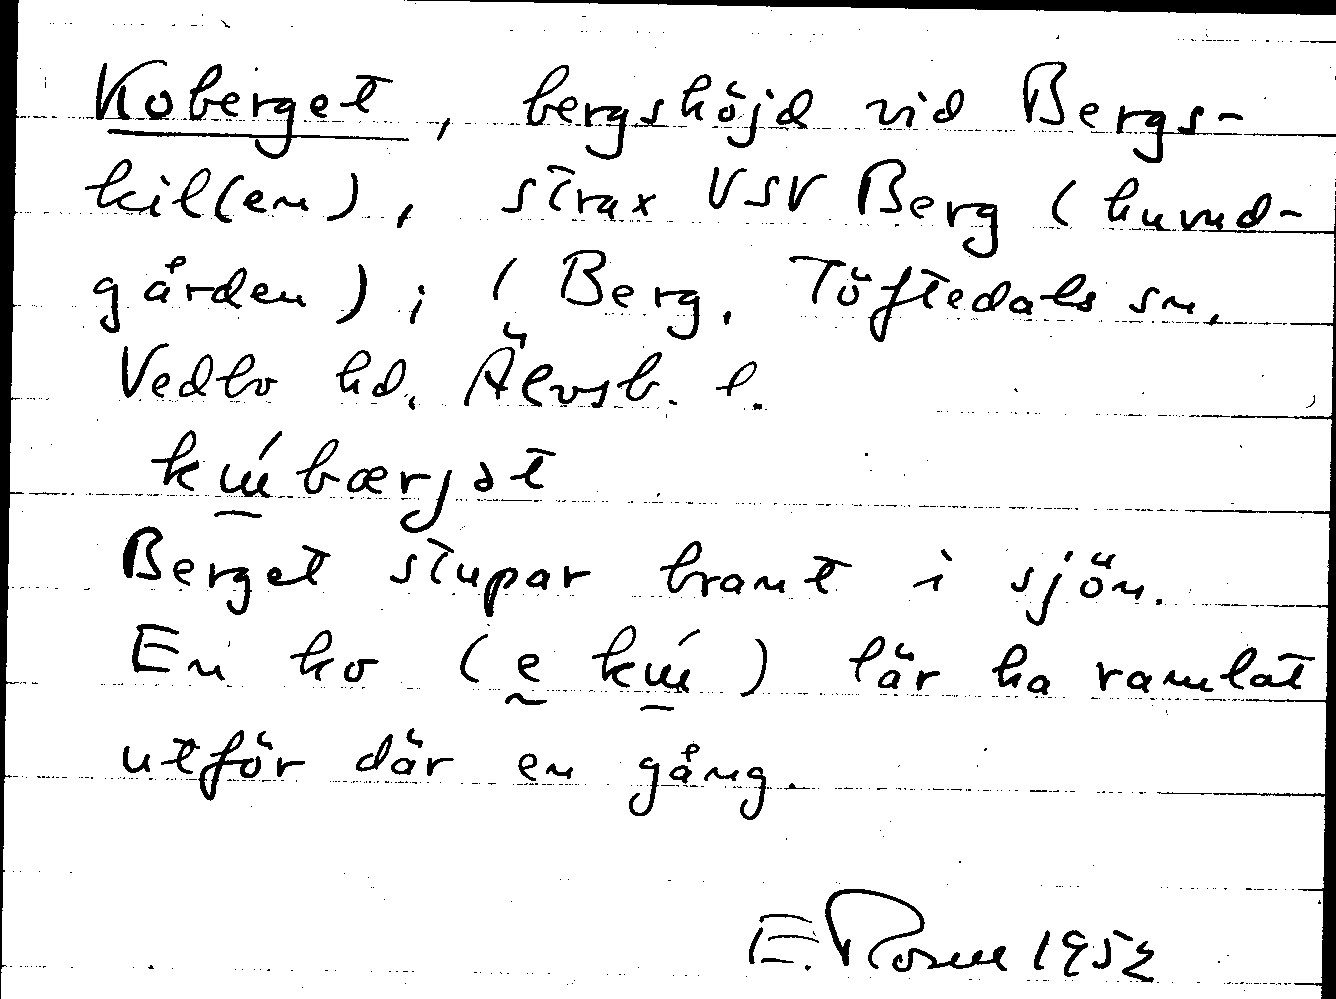 Koberget, bergshöjd vid Bergs-
kil(en), strax VSV Berg (huvud-
gården); (Berg, Töftedals sn,
Vedbo hd, Älvsb. l.
Berget stupar brant i sjön.
En ko (e) lär ha ramlat
utför där en gång.
E. Rosell 1952